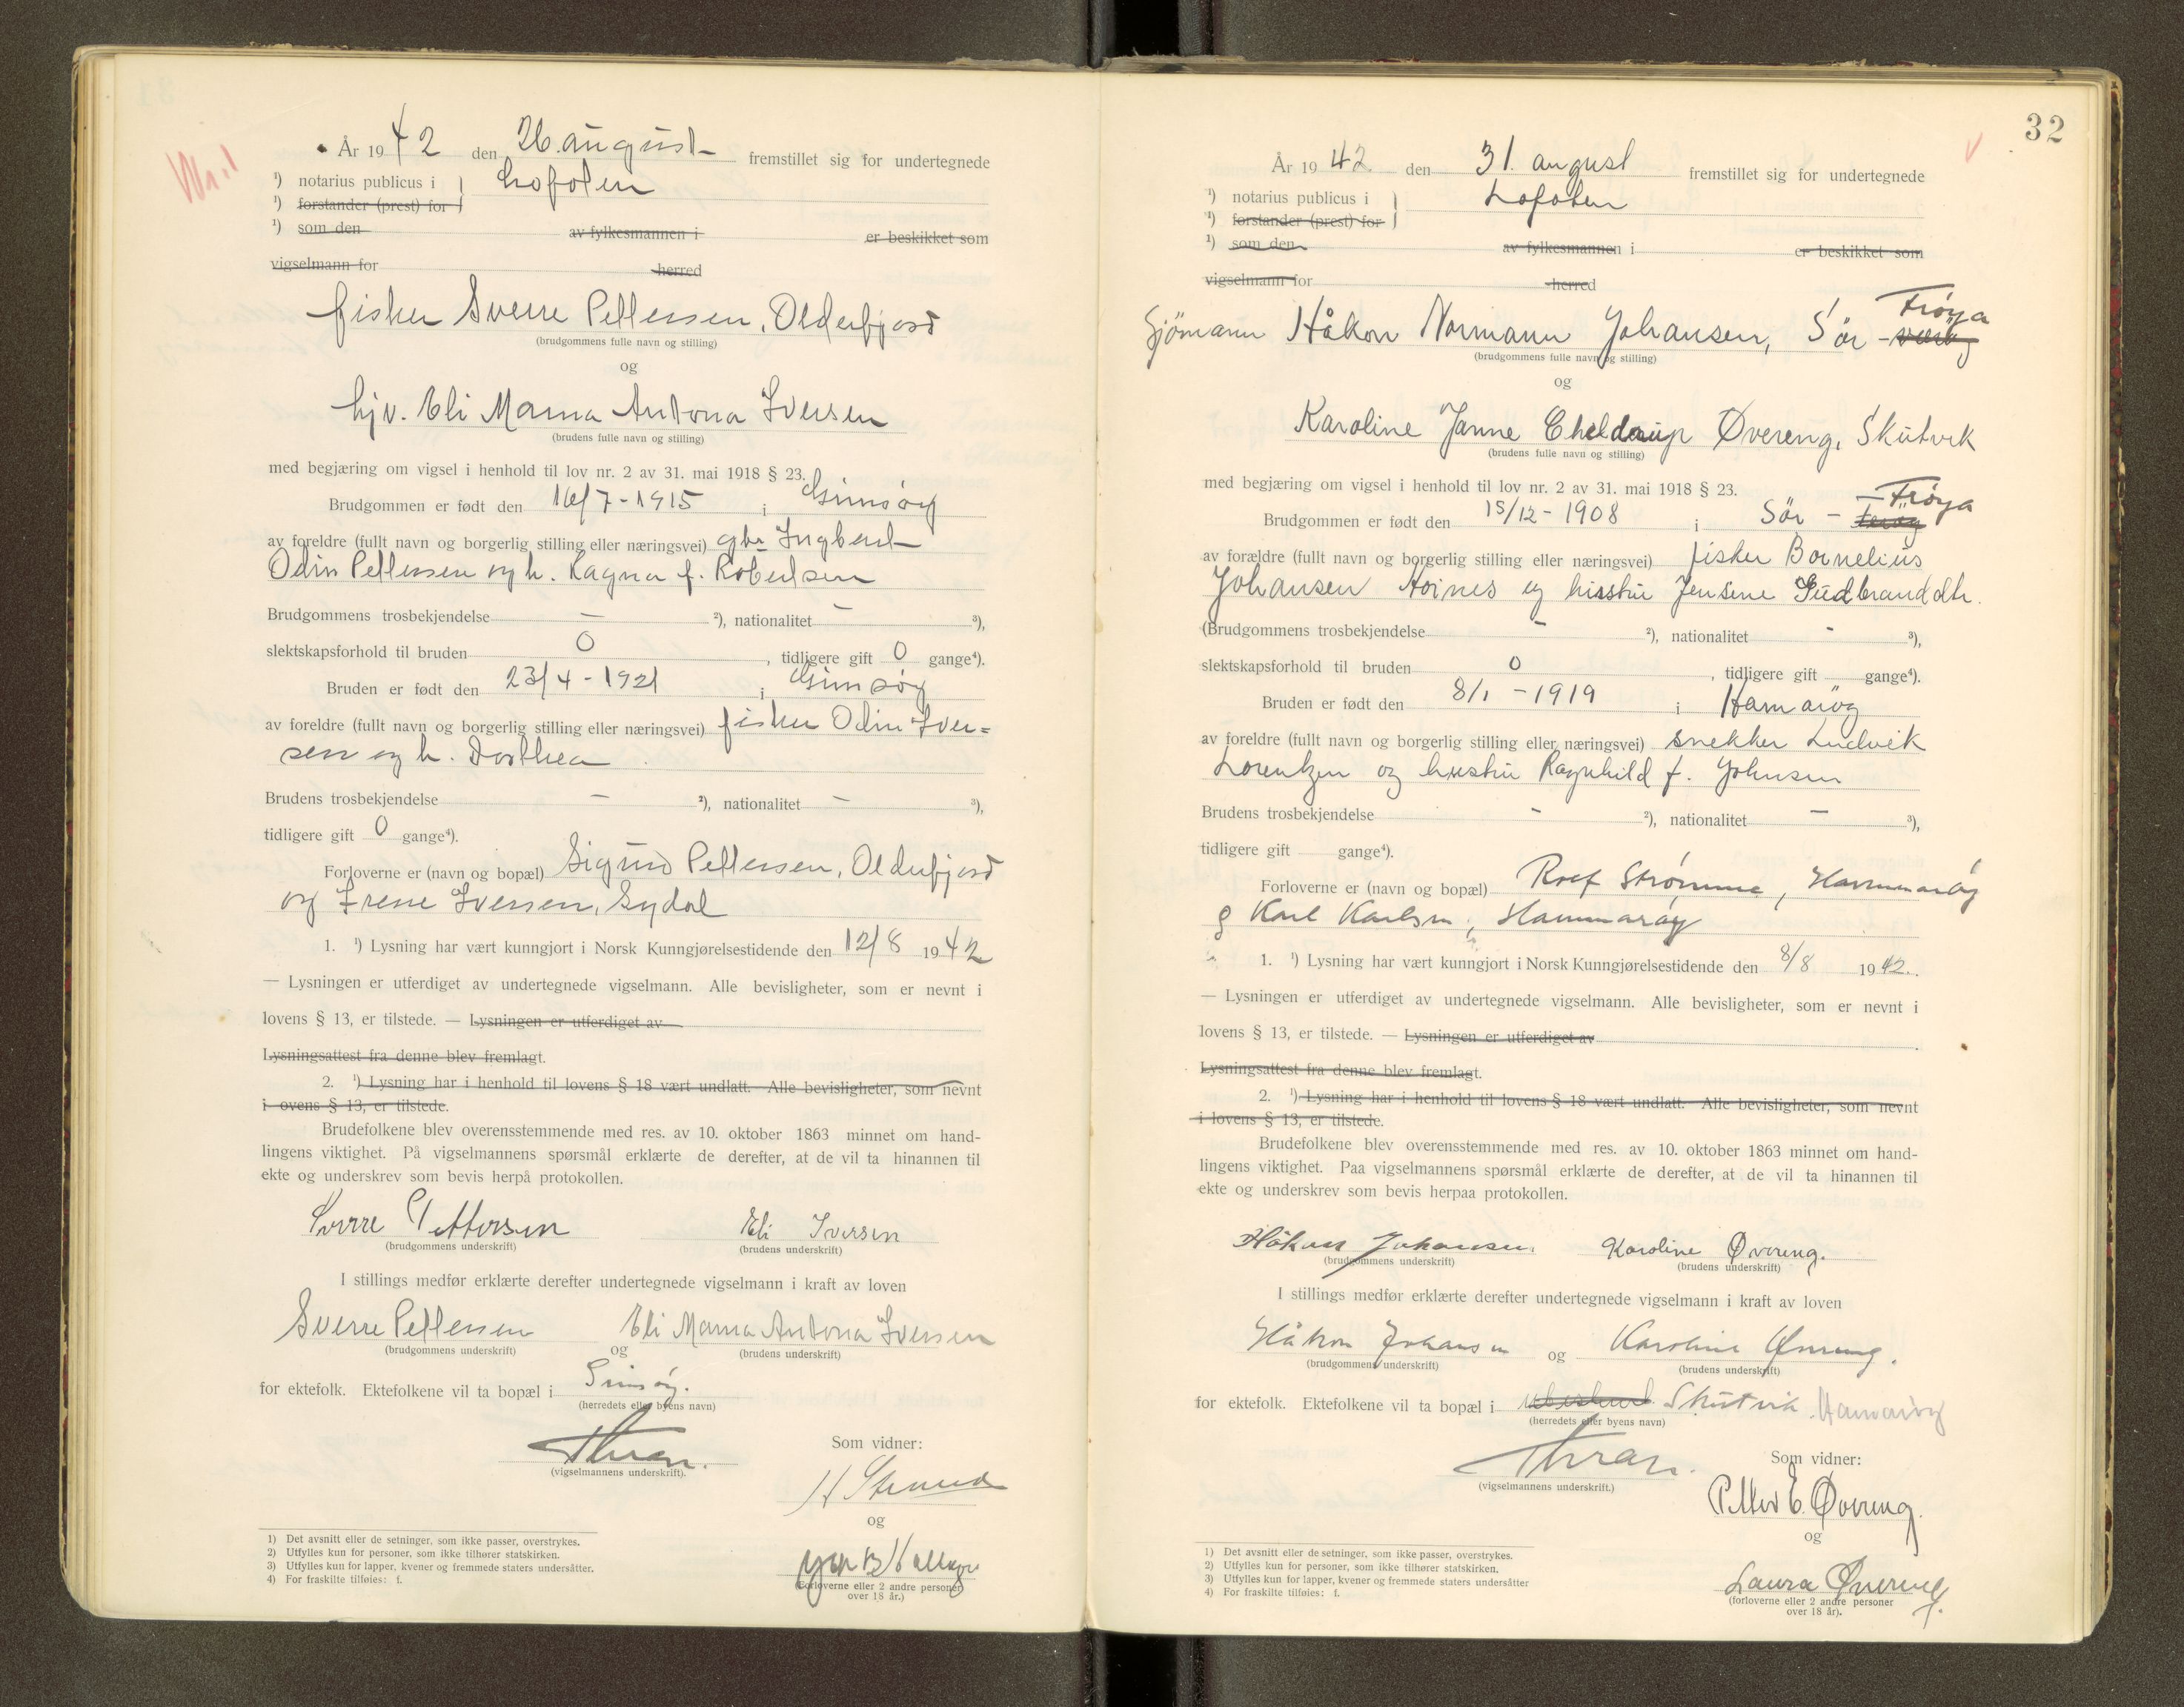 År 1942 den 26. august fremstillet sig for undertegnede
¹) notarius publicus i Lofoten
¹) forstander (prest) for
¹) som den av fylkesmannen i er beskikket som
vigselmann for herred
fisker Sverre Pettersen, Olderfjord
(brudgommens fulle navn og stilling)
og
hjv. Eli Marna Antona Iversen
(brudens fulle navn og stilling)
med begjæring om vigsel i henhold til lov nr. 2 av 31. mai 1918 § 23.
Brudgommen er født den 16/7-1915 i Gimsøy
av foreldre (fullt navn og borgerlig stilling eller næringsvei) gbr Ingbert
Odin Pettersen og h. Ragna f. Robertsen
Brudgommens trosbekjendelse — ²), nationalitet — ³),
slektskapsforhold til bruden 0, tidligere gift 0 gange⁴).
Bruden er født den 23/4-1921 i Gimsøy
av foreldre (fullt navn og borgerlig stilling eller næringsvei) fisker Odin Iver=
sen og h. Dorthea
Brudens trosbekjendelse — ²), nationalitet — ³),
tidligere gift 0 gange⁴).
Forloverne er (navn og bopæl) Sigurd Pettersen, Olderfjord
og Irene Iversen, Sydal
1. ¹) Lysning har vært kunngjort i Norsk Kunngjørelsestidende den 12/8 1942
— Lysningen er utferdiget av undertegnede vigselmann. Alle bevisligheter, som er nevnt i
lovens § 13, er tilstede. — Lysningen er utferdiget av
Lysningsattest fra denne blev fremlagt.
2. ¹) Lysning har i henhold til lovens § 18 vært undlatt. Alle bevisligheter, som nevnt
i ovens § 13, er tilstede.
Brudefolkene blev overensstemmende med res. av 10. oktober 1863 minnet om hand-
lingens viktighet. På vigselmannens spørsmål erklærte de derefter, at de vil ta hinannen til
ekte og underskrev som bevis herpå protokollen.
Sverre Pettersen Eli Iversen
(brudgommens underskrift) (brudens underskrift)
I stillings medfør erklærte derefter undertegnede vigselmann i kraft av loven
Sverre Pettersen og Eli Marna Antona Iversen
(brudgommens underskrift) (brudens underskrift)
for ektefolk. Ektefolkene vil ta bopæl i Gimsøy.
(herredets eller byens navn)
Som vidner:
(vigselmannens underskrift).
og
(forloverne eller 2 andre personer
over 18 år.)
1) Det avsnitt eller de setninger, som ikke passer, overstrykes.
2) Utfylles kun for personer, som ikke tilhører statskirken.
3) Utfylles kun for lapper, kvener og fremmede staters undersåtter.
4) For fraskilte tilføies: f.
32
År 1942 den 31. august fremstillet sig for undertegnede
¹) notarius publicus i Lofoten
¹) forstander (prest) for
¹) som den av fylkesmannen i er beskikket som
vigselmann for herred
Frøya
Sjömann Håkon Normann Johansen, Sör -
(brudgommens fulle navn og stilling)
og
Karoline Janne Cheldrup Øvereng, Skutvik
(brudens fulle navn og stilling)
med begjæring om vigsel i henhold til lov nr. 2 av 31. mai 1918 § 23.
Frøya
Brudgommen er født den 15/12-1908 i Sör -
av forældre (fullt navn og borgerlig stilling eller næringsvei) fisker Bornelius
Johansen og hustru Jensine Gudbranddtr.
(Brudgommens trosbekjendelse - ²), nationalitet - ³),
slektskapsforhold til bruden 0, tidligere gift gange⁴).
Bruden er født den 8/1-1919 i Hamarøy
av foreldre (fullt navn og borgerlig stilling eller næringsvei) snekker Ludvik
Lorentzen og hustru Ragnhild f. Johnsen
Brudens trosbekjendelse - ²), nationalitet — ³),
tidligere gift gange⁴).
Forloverne er (navn og bopæl) Rolf Strømme, Hammarøy
g Karl Karlsen, Hammarøy
1. ¹) Lysning har vært kunngjort i Norsk Kunngjørelsestidende den 8/8 1942.
— Lysningen er utferdiget av undertegnede vigselmann. Alle bevisligheter, som er nevnt i
lovens § 13, er tilstede. — Lysningen er utferdiget av
Lysningsattest fra denne blev fremlagt.
2. ¹) Lysning har i henhold til lovens § 18 vært undlatt. Alle bevisligheter, som nevnt
i lovens § 13, er tilstede.
Brudefolkene blev overensstemmende med res. av 10. oktober 1863 minnet om hand-
lingens viktighet. Paa vigselmannens spørsmål erklærte de derefter, at de vil ta hinannen til
ekte og underskrev som bevis herpaa protokollen.
Håkon Johansen. Karoline Øvereng.
(brudgommens underskrift) (brudens underskrift)
I stillings medfør erklærte derefter undertegnede vigselmann i kraft av loven
Håkon Johansen og Karoline Øvereng.
(brudgommens underskrift) (brudens underskrift)
for ektefolk. Ektefolkene vil ta bopæl i Skutvik. Hamarøy
(herredets eller byens navn)
Som vidner:
(vigselmannens underskrift.)
Petter E. Øvereng.
og
Laura Øvereng.
(forloverne eller 2 andre personer
over 18 år).
1) Det avsnitt eller de setninger, som ikke passer, overstrykes.
2) Utfylles kun for personer, som ikke tilhører statskirken.
3) Utfylles kun for lapper, kvener og fremmede staters undersåtter
4) For fraskilte tilføies: f.